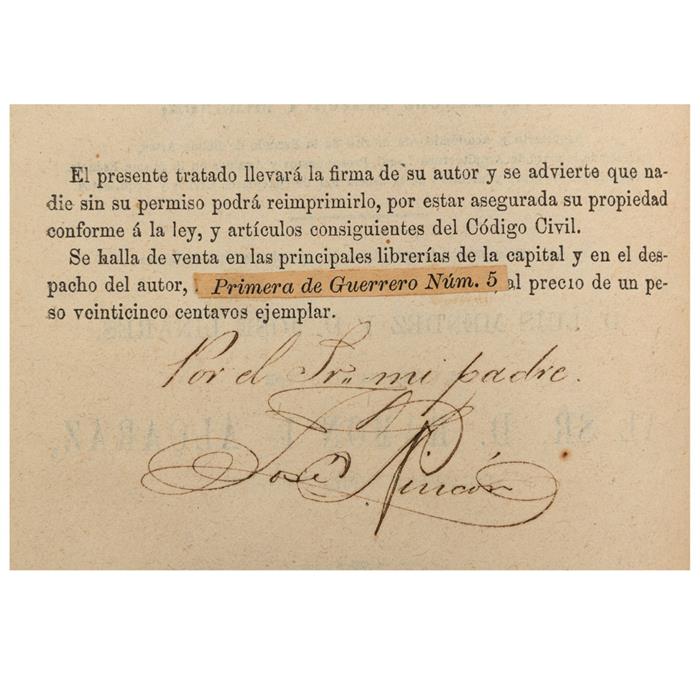 El presente tratado llevará la firma de su autor y se advierte que na-
die sin su permiso podrá reimprimirlo, por estar asegurada su propiedad
conforme á la ley, y artículos consiguientes del Código Civil.
Se halla de venta en las principales librerías de la capital y en el des-
pacho del autor, Primera de Guerrero Núm. 5 al precio de un pe-
so veinticinco centavos ejemplar.
Por el Sr. mi padre.
José Rincón